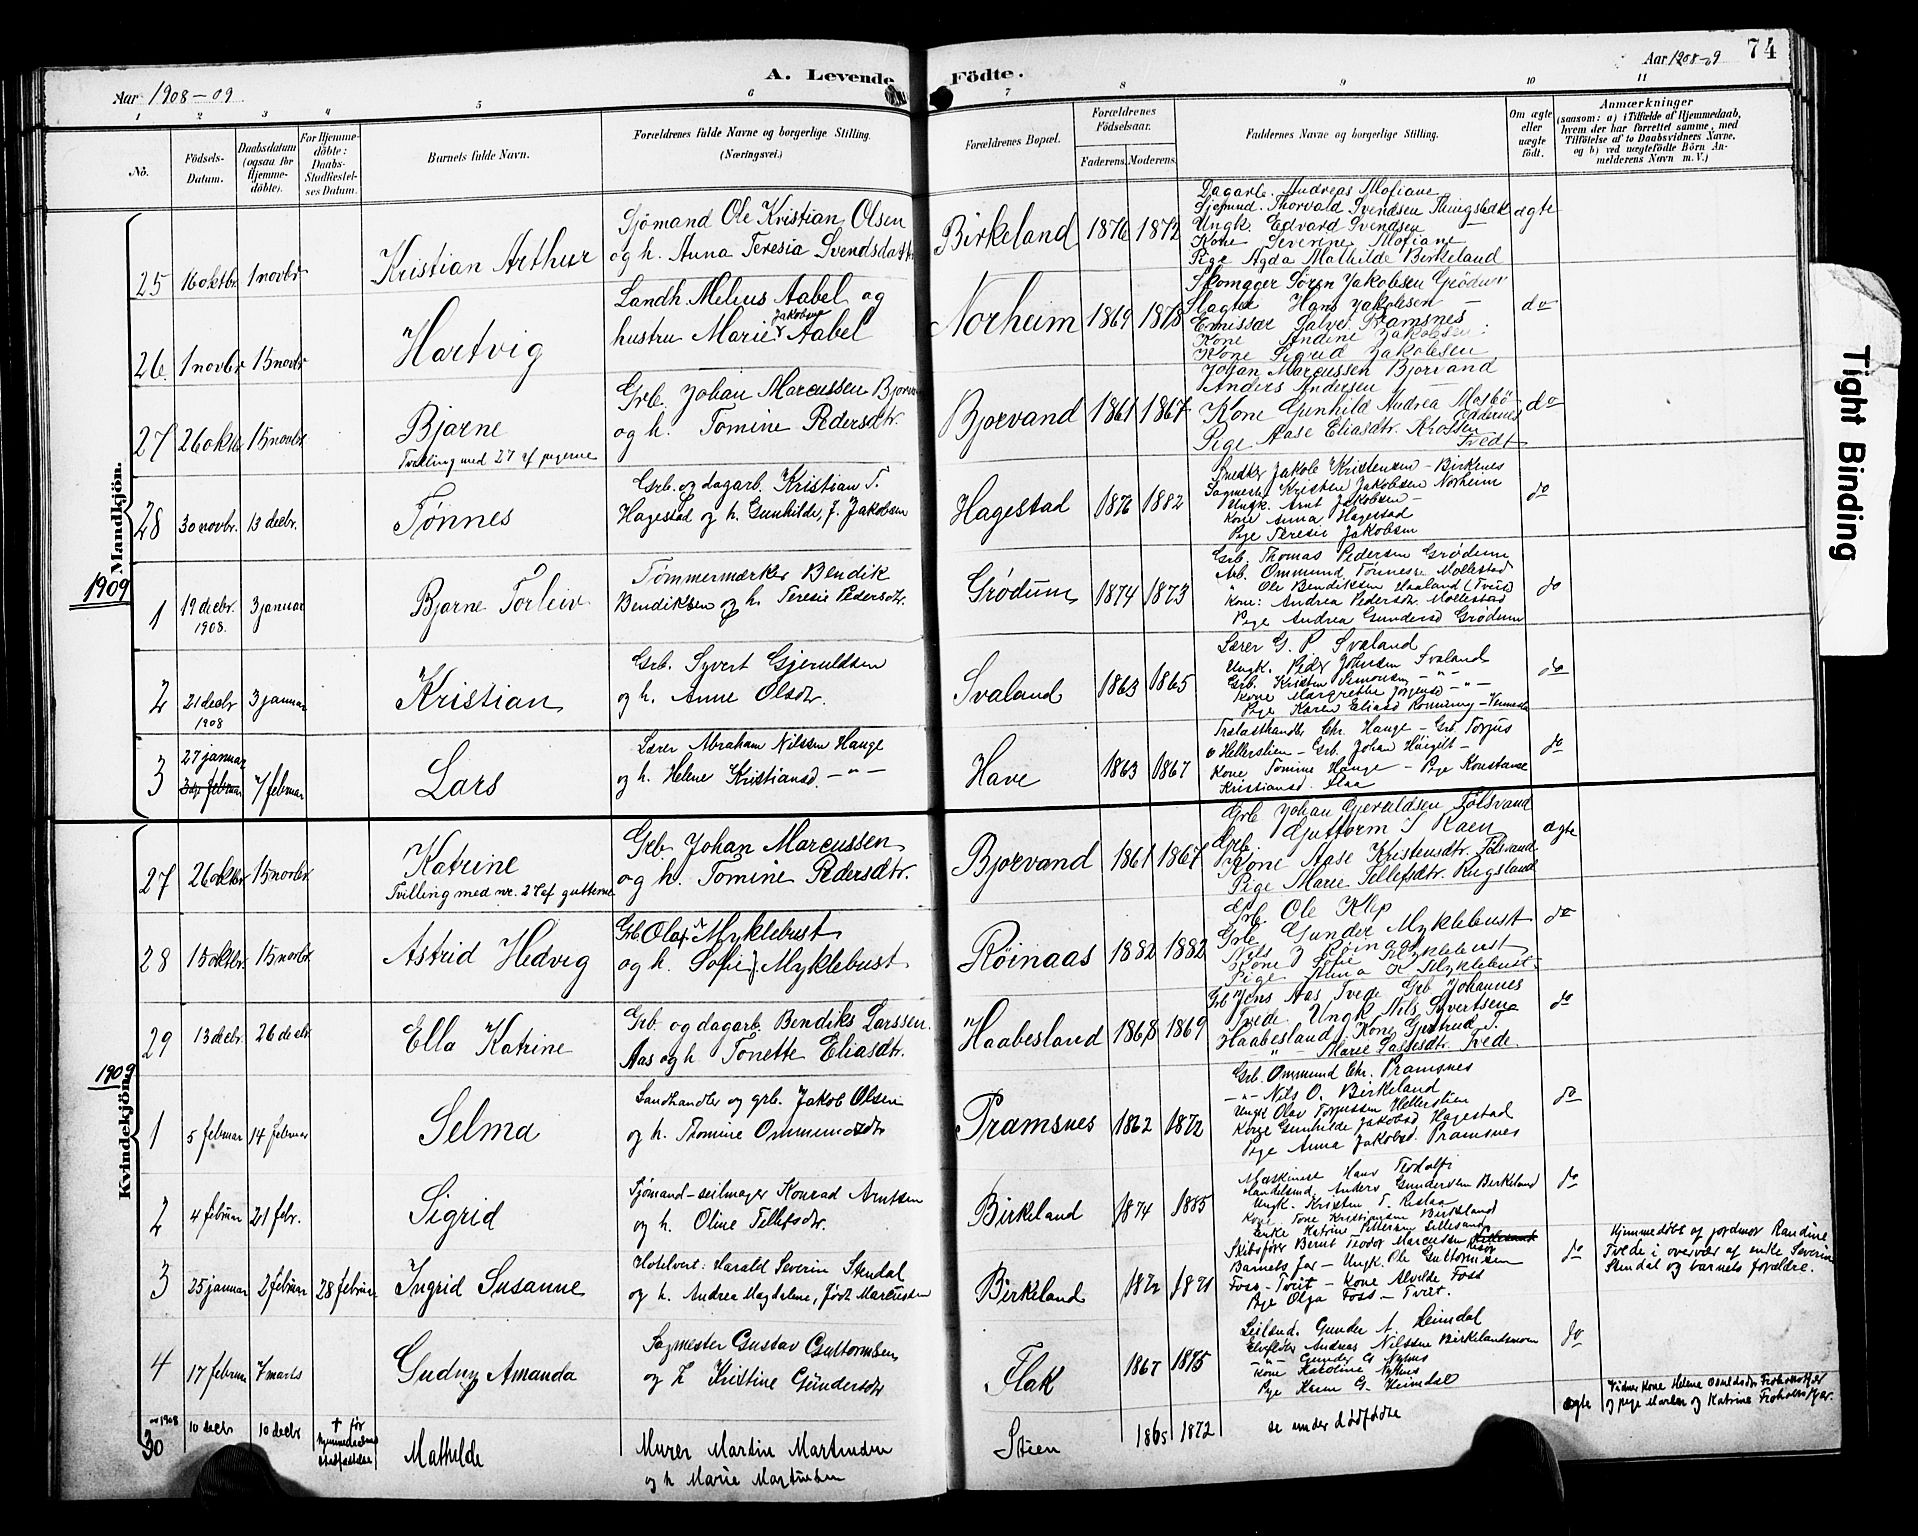 A. Levende Födte.
74
Aar 1908-09
Aar 1908-09
1 2 3 4 5 6 7 8 9 10 11
No.
Födsels-Datum.
Daabsdatum (ogsaa for Hjemmedöbte).
For Hjemmedöbte: Daabs-Stadfæstelses Datum.
Barnets fulde Navn.
Forældrenes fulde Navne og borgerlige Stilling.
(Næringsvei.)
Forældrenes Bopæl.
Forældrenes Födselsaar.
Faderens. Moderens.
Faddernes Navne og borgerlige Stilling.
Om ægte eller uægte födt.
Anmærkninger
(saasom: a) i Tilfælde af Hjemmedaab,
hvem der har forrettet samme, med
Tilföielse af to Daabsvidners Navne.
og b) ved uægtefödte Börn Anmelderens Navn m. V.)
Mandkjön.
25 16 oktbr. 1 novbr
Kristian Arthur
Sjömand Ole Kristian Olsen
og h. Anna Teresia Svendsdatt
Birkeland 1876 1872
Dagarb. Andreas Mofiane
Thorvald Svendsen
Ungk. Edvard Svendsen
Kone Severine Mofiane
Pige Agda Mathilde Birkeland
ægte
26. 1 novbr 15 novbr
Hartvig
Landh. Melius Aabel og
hustru Marie Jakobine Aabel
Norheim 1869 1878
Skomager Sören Jakobsen Grödum
Slagter Hans Jakobsen —
Emissær Salve Pramsnes
Kone Andine Jakobsen
Kone Sigrid Jakobsen
do
27 26 oktbr 15 novbr
Bjarne
Tvilling med 27 af pigerne
Grb. Johan Marcussen Bjorvand
og h. Tomine Pedersdtr.
Bjorvand 1861 1867
Johan Marcussen Bjorvand
Anders Andersen —
Kone Gunhild Andrea Mosbö - Oddernes
Pige Aase Eliasdtr. Tvedt
do
28 30 novbr. 13 decbr.
Tønnes
Grb. og dagarb. Kristian T.
Hagestad og h. Gunhilde, f. Jakobsen
Hagestad 1876 1882
Snedker Jakob Kristensen - Birkenes
Sagmester Kristen Jakobsen Norheim
Ungk. Arnt Jakobsen -
Kone Anna Hagestad
Pige Teresie Jakobsen
do
1909
1 19 decbr. 1908. 3 januar
Bjarne Torleiv
Tømmermærker Bendik
Bendiksen og h. Teresie Pedersdtr.
Grødum 1874 1873
Grb. Thomas Pedersen Grødum
Arb. Ommund Tønnessen Mollestad
" Ole Bendiksen Haaland (Tveit)
Kone: Andrea Pedersdtr. Mollestad
Pige Andrea Gundersd Grødum
do
2 21 decbr 1908 3 januar
Kristian
Grb. Syvert Gjeruldsen
og h. Anne Olsdtr.
Svaland 1863 1865
Lærer G. P. Svaland
Ungk. Peder Johnsen Svaland
Grb. Kristen Simonsen - " -
Kone Margrethe Jörgensd - " -
Pige Karen Eliasd - Vennesla
do
3 27 januar 7 februar
Lars
Lærer Abraham Nilssen Hauge
og h. Helene Kristiansd. - " -
Have 1863 1867
Trælasthandler Chr. Hauge - Grb. Torjus
Hellerslien - Grb. Johan Höigilt -
Kone Tomine Hauge - Pige Konstanse
Kristiansd. Flaa
do
Kvindekjön.
27 26 oktbr 15 novbr
Katrine
Tvilling med nr. 27 af gutterne
Grb Johan Marcussen
og h. Tomine Pedersdtr.
Bjorvand 1861 1867
Grb Johan Gjeruldsen Fölsvand
Grb. Guttorm S Raen
Kone Aase Kristensdtr. Fölsvand
Pige Marie Tellefsdtr. Rugsland
ægte
28 15 oktbr. 15 novbr.
Astrid Hedvig
Grb Olaf Myklebust
og h. Sofie Myklebust
Röinaas 1882 1882
Grb. Ole Klep
Grb Gunder Myklebust
Nils J Röinaas
Kone Sofie Myklebust
Pige Alma Myklebust
do
29 13 decbr. 26 decbr
Ella Katrine
Grb. og dagarb. Bendiks Larssen
Aas og h. Tonette Eliasdtr.
Haabesland 1868 1869
Grb Jens Aas Tvede Grb Johannes
Tvede. Ungk Nils Syvertsen
Haabesland, Kone Gjertrud T.
" Marie Lassesdtr. Tvede.
do
1909
1 5 februar 14 februar
Selma
Landhandler og grb. Jakob Olsen
og h. Thomine Ommundsdtr
Pramsnes 1862 1872
Grb. Ommund Chr. Pramsnes
- " - Nils O. Birkeland
Ungk Olav Torjussen Hellerslien
Kone Gunhilde Jakobsd Hagestad
Pige Anna Jakobsd. Pramsnes
do
2 4 februar 21 febr.
Sigrid
Sjömand-seilmager Konrad Arntsen
og h. Oline Tellefsdtr.
Birkeland 1874 1885
Maskinist Hans Teodolfs
Handelsmd. Anders Gundersen Birkeland
Ungk. Kristen T. Retlaa
Kone Tone Kristiansen Birkeland
Enke Katrine Pettersen Lillesand
do
3 25 januar 2 februar 28 februar
Ingrid Susanne
Hotelvert: Harald Severin Stendal
og h. Andrea Magdalene, född Marcussen
Birkeland 1872 1871
Skibsförer Bernt Teodor Marcussen
Barnets far - Ungk. Ole Guttormsen
Foss - Tveit - Kone Alvilde Foss
Pige Olga Foss - Tveit.
do
Hjemmedöbt af jordmor Randine
Tvede i overvær af enke Severine
Stendal og barnets forældre.
4 17 februar 7 marts
Gudny Amanda
Sagmester Gustav Guttormsen
og h Kristine Gundersdtr
Flak 1867 1875
Gunder A. Heimdal
Andreas Nilssen Birkelandsmoen
- " - Gunder G Nyhus
Kone Karoline Nyhus
Pige Karen G. Heimdal
do
1908
30 10 decbr 10 decbr
† før hjemmedaabens stadfæstelse
Mathilde
Murer Martin Martinsen
og h Marie Martinsen
Stien 1865 1872
se under dödfødte
ægte
Vidner Kone Helene
og pige Maren og Katrine
Tight Binding